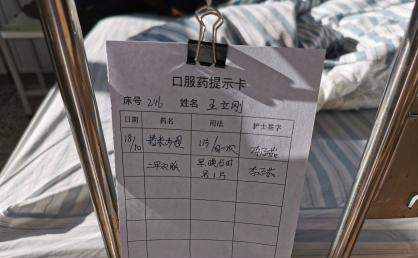 口服药提示卡
床号 246 姓名 王立刚
日期 药名 用法 护士签字
18/10 替米沙坦 1片/日一次
二甲双胍 早晚各时
各1片